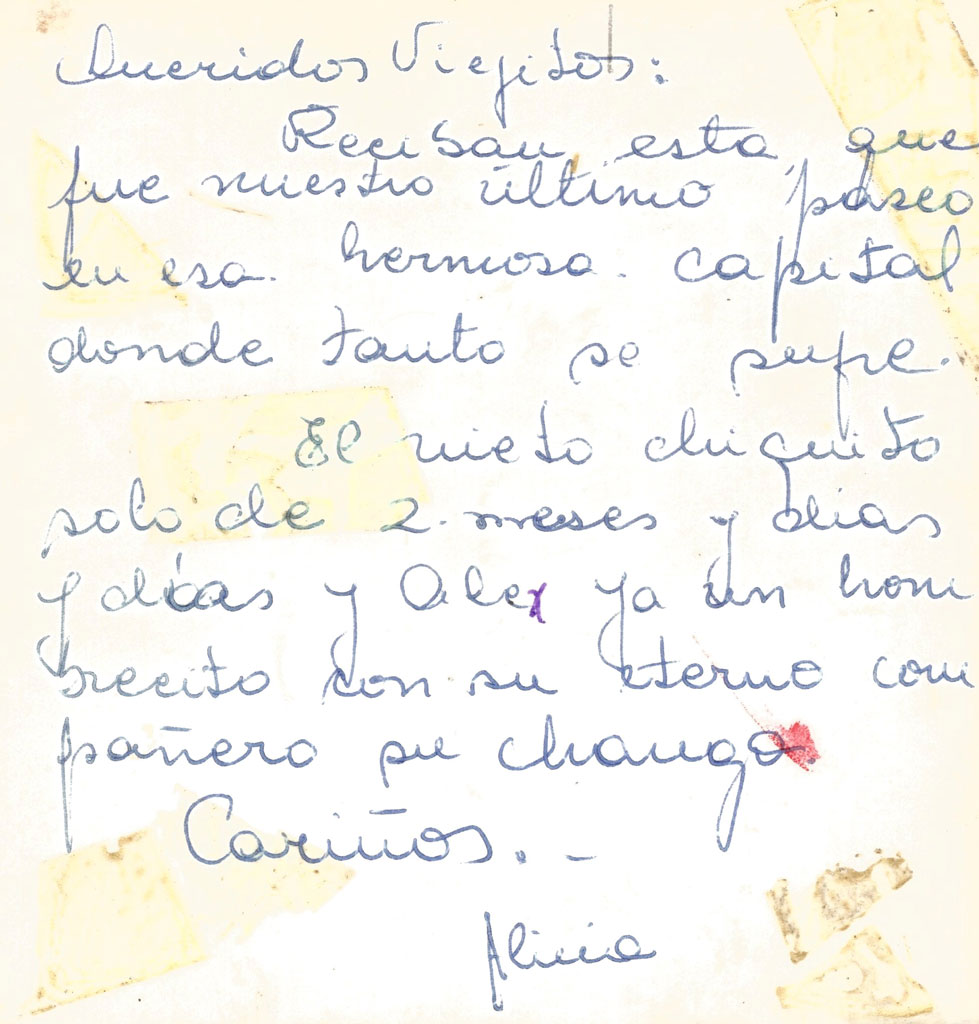 Queridos Viejitos:
Reciban esta que
fue nuestro último paseo
en esa hermosa capital
donde tanto se sufre.
El nieto chiquito
solo de 2 meses y dias
y dias y Alex ya un hom
brecito con su eterno com
pañero su changa.
Cariños. -
Alicia